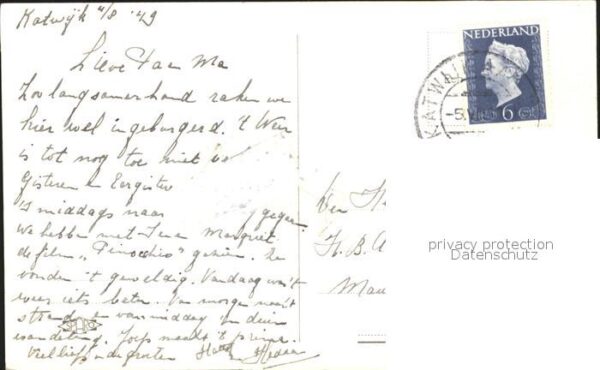 Katwijk 4/8 '49
Lieve Pa en Ma
Zoo langzamerhand raken we
hier wel ingeburgerd. 't Weer
is tot nog toe niet
Gisteren en Eergister
's middags naar gegaan
We hebben met Margriet
de film "Pinocchio" gezien. Ze
vonden 't geweldig. Vandaag was 't
weer iets beter. Van morgen naar 't
strand en van middag 'n duin
wandeling. Joep maakt 't prima.
Veel liefs en de groeten
NEDERLAND
6 CT
KATWIJK
-5.
H. B.
privacy protection
Datenschutz